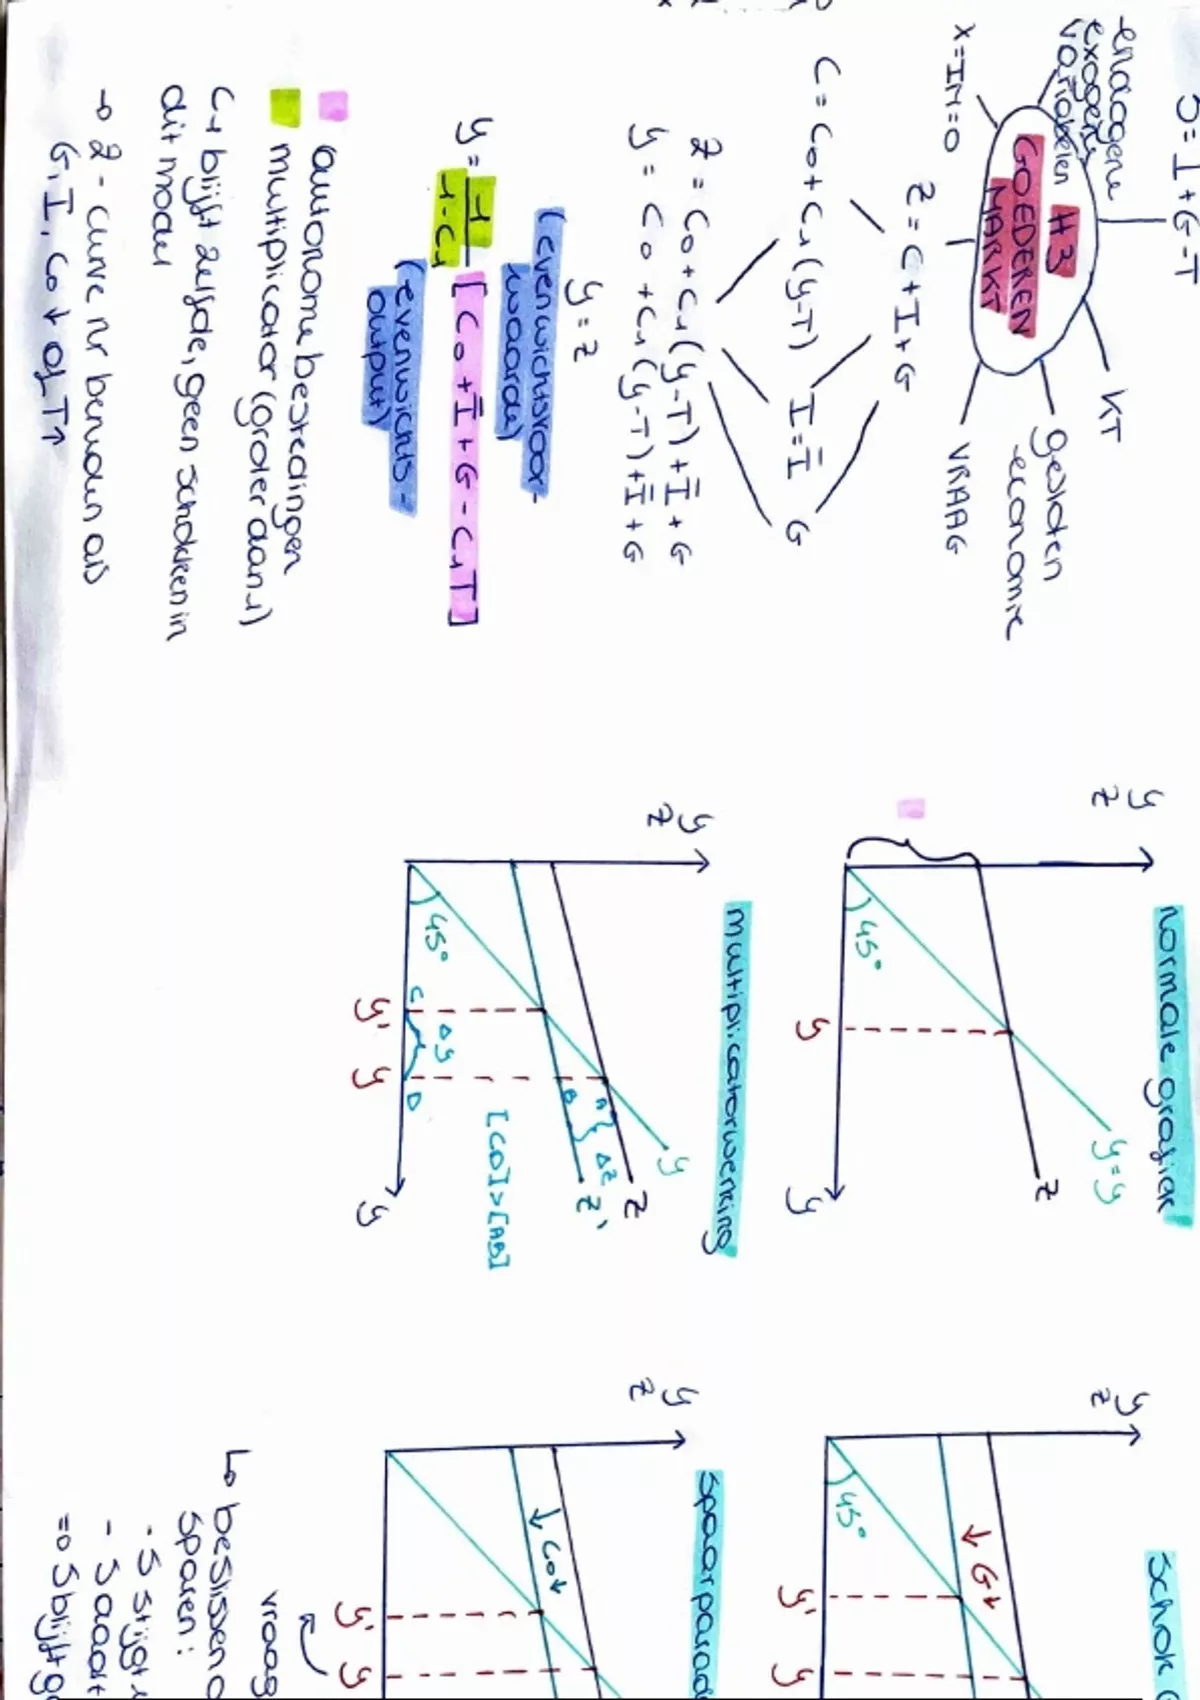 S = I + G - T
endogene
exogene
variabelen
H3
GOEDEREN
MARKT
KT
gesloten
economie
VRAAG
X = IM = 0
Z = C + I + G
C = C0 + C1 (Y-T)
I = Ī
G
Z = C0 + C1 (Y-T) + Ī + G
Y = C0 + C1 (Y-T) + Ī + G
Y = Z
(evenwichtsvoor-
waarde)
Y = 1 / 1 - C1 [C0 + Ī + G - C1T]
(evenwichts-
output)
autonome bestedingen
multiplicator (groter dan 1)
C1 blijft zelfde, geen schokken in
dit model
→ Z-curve nr beneden als
G, I, C0 ↓ of T↑
Normale grafiek
Y
Z
45°
Y
Y=Y
Z
Y
multiplicatorwerking
Y
Z
45°
C
ΔY
D
Y'
Y
B
A
ΔZ
Y
Z
Z'
[CD] > [AB]
Y
Schok
Y
Z
45°
↓ G↓
Y'
Y
Spaarparad
Y
Z
↓ C0↓
Y'
Y
vraag
↳ beslissen
sparen:
- S stijgt
- S daalt
⇒ S blijft